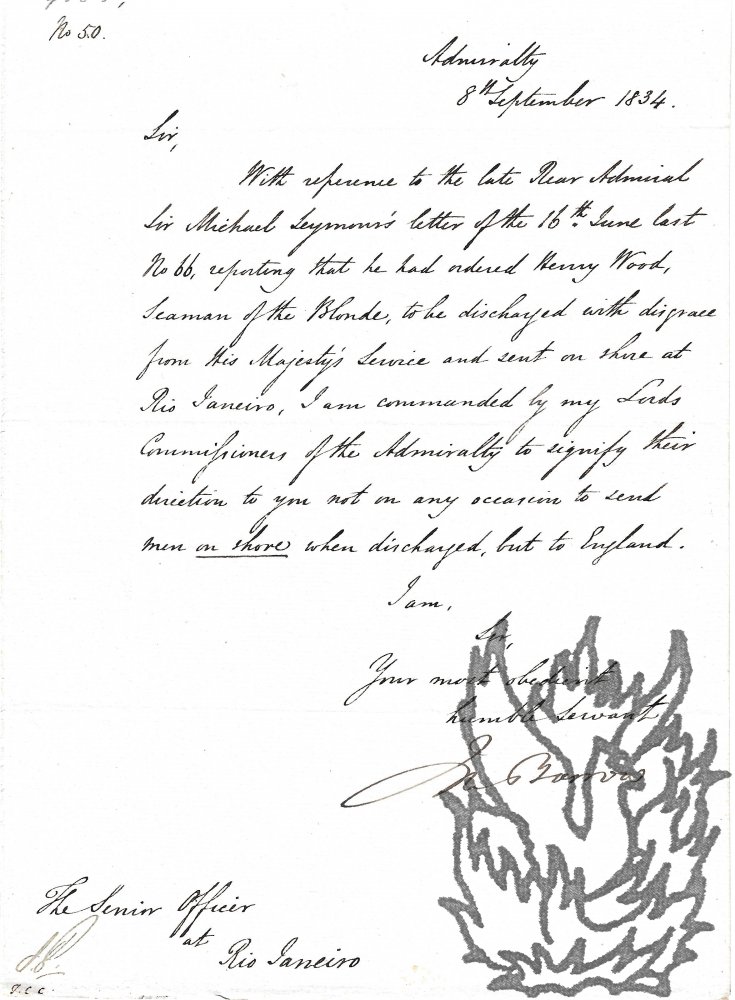 No 50.
Admiralty
8th September 1834.
Sir,
With reference to the late Rear Admiral
Sir Michael Seymour's letter of the 16th June last
No 66, reporting that he had ordered Henry Wood,
Seaman of the Blonde, to be discharged with disgrace
from His Majesty's Service and sent on shore at
Rio Janeiro, I am commanded by my Lords
Commissioners of the Admiralty to signify their
direction to you not on any occasion to send
men on shore when discharged, but to England.
I am,
Sir,
Your most obedient
humble Servant
Jn Barrow
The Senior Officer
at
Rio Janeiro